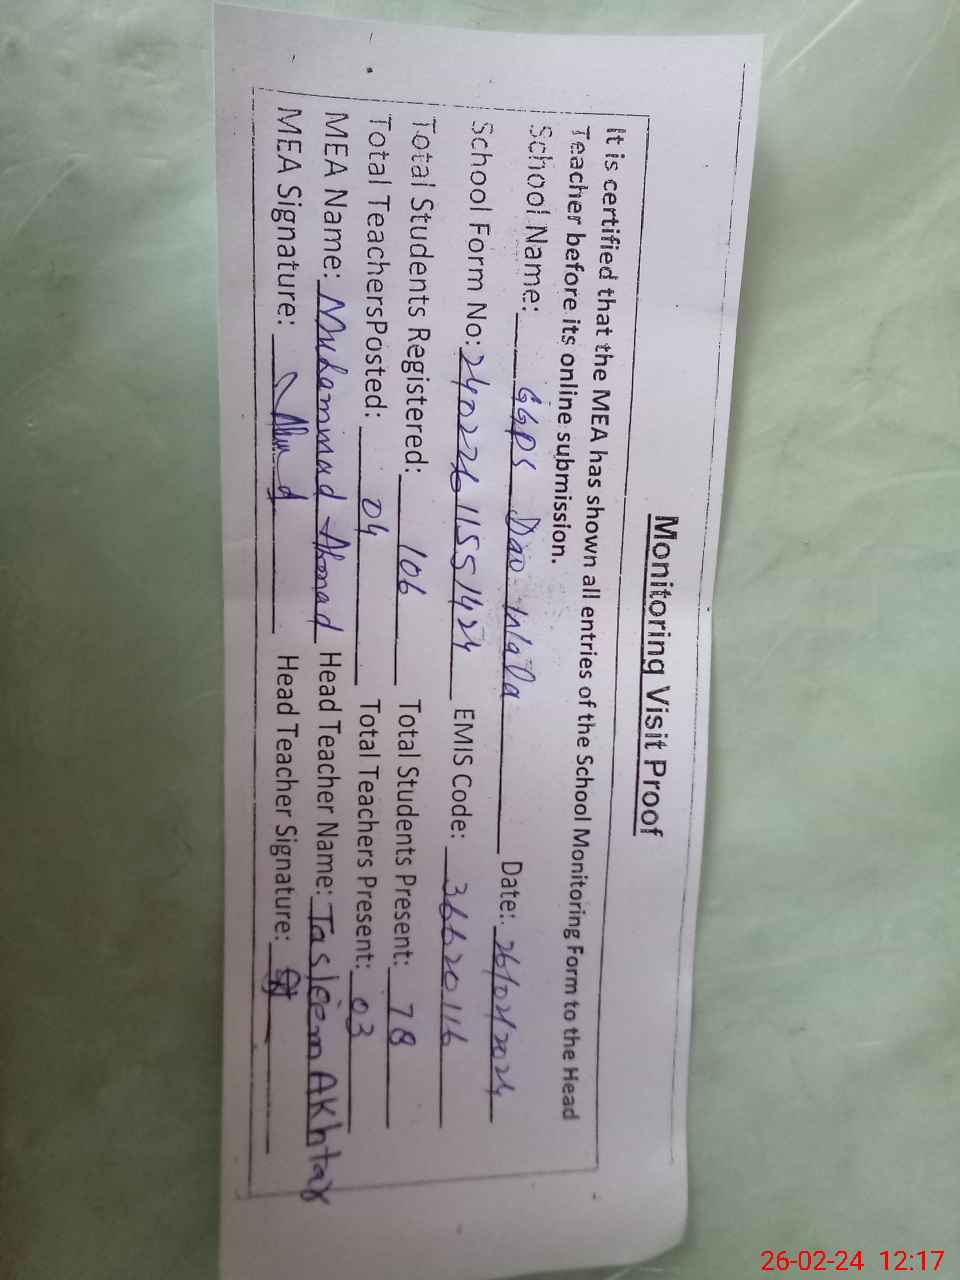 Monitoring Visit Proof
It is certified that the MEA has shown all entries of the School Monitoring Form to the Head
Teacher before its online submission.
School Name: GGPS Date: 26/02/2024
School Form No: 240226 11551424 EMIS Code: 36620116
Total Students Registered: 106 Total Students Present: 78
Total TeachersPosted: 04 Total Teachers Present: 03
MEA Name: Muhammad Ahmad Head Teacher Name: Tasleem Akhtar
MEA Signature: Head Teacher Signature:
26-02-24 12:17